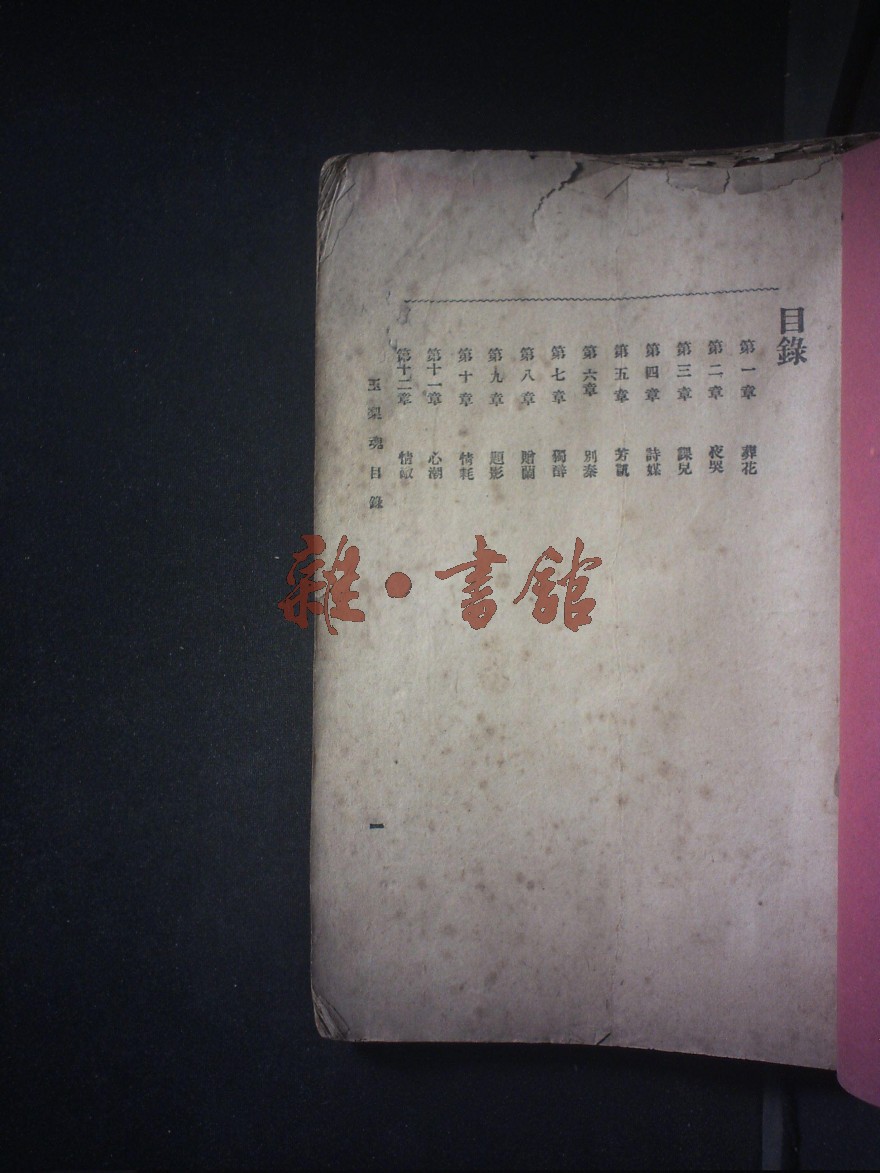 目錄
第一章 葬花
第二章 夜哭
第三章 課兒
第四章 詩媒
第五章 芳訊
第六章 別秦
第七章 獨醉
第八章 贈蘭
第九章 題影
第十章 情耗
第十一章 心潮
第十二章 情敵
玉梨魂目錄
一
雜·書館